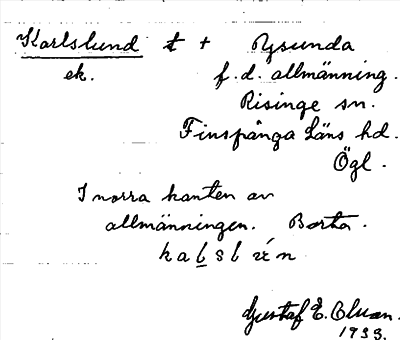 Karlslund t + Rysunda
ek. f. d. allmänning.
Risinge sn.
Finspånga Läns hd.
Ögl.
I norra kanten av
allmänningen. Borta.
Gustaf E. Olson.
1933.